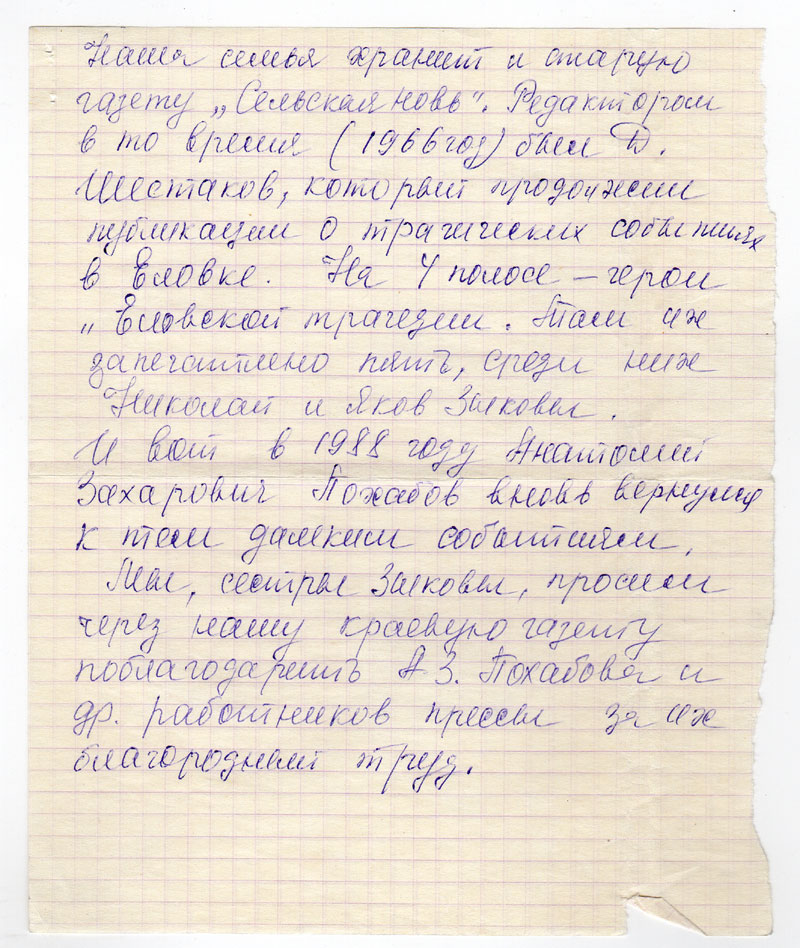 Наша семья хранит и старую
газету „Сельская новь". Редактором
в то время (1966 год) был Д.
Шестаков, который продолжил
публикации о трагических событиях
в Еловке. На 4 полосе – герои
„Еловской трагедии. Там их
запечатлено пять, среди них
Николай и Яков Зыковы.
И вот в 1988 году Анатолий
Захарович Похабов вновь вернулся
к тем далеким событиям.
Мы, сестры Зыковы, просим
через нашу краевую газету
поблагодарить А З. Похабова и
др. работников прессы за их
благородный труд.